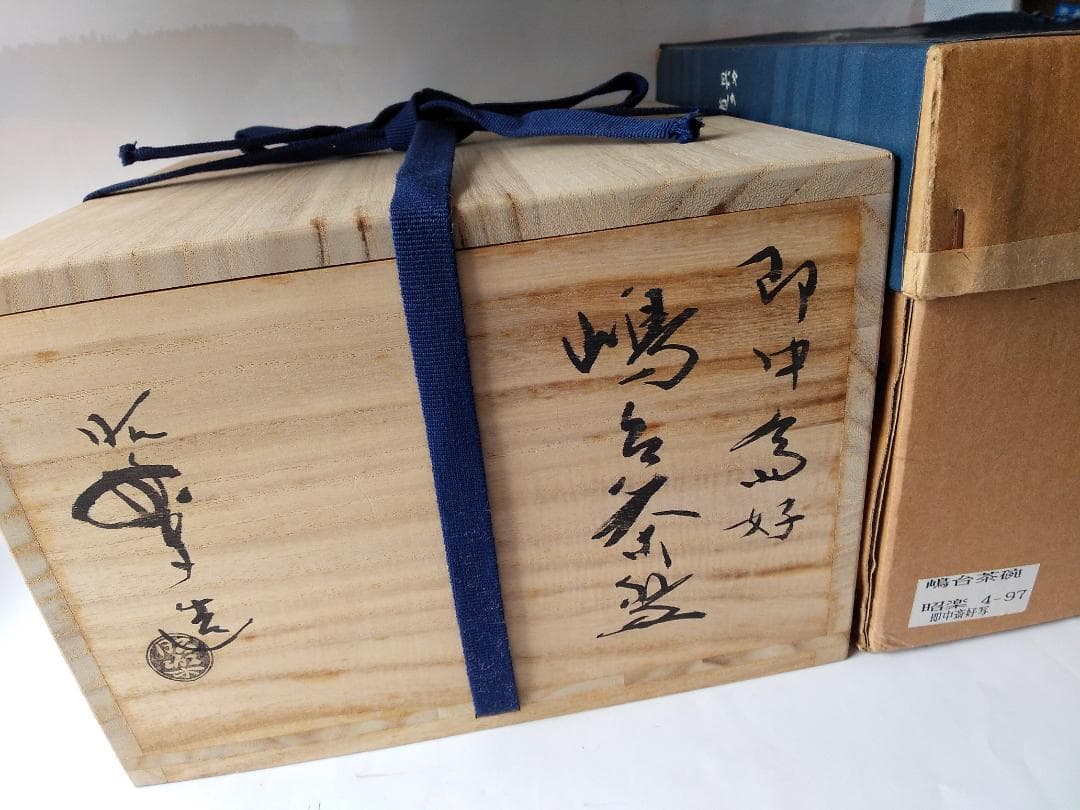 即中斎好
嶋台茶盌
昭楽造
嶋台茶碗
昭楽 4-97
即中斎好写